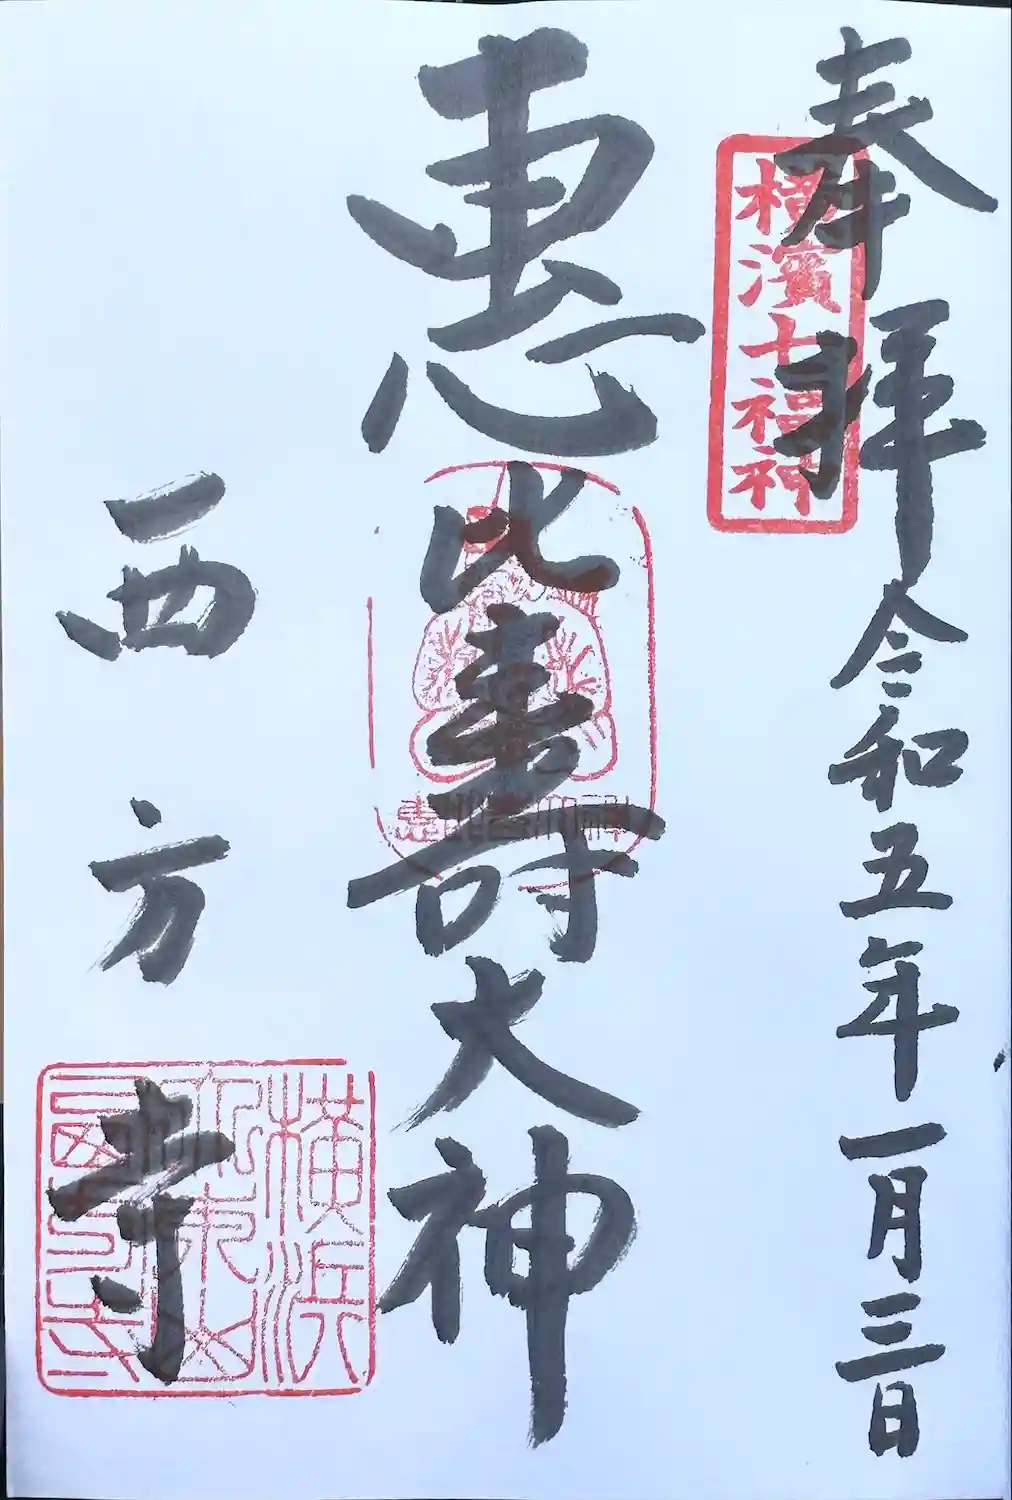 奉拝 令和五年一月三日
横濱七福神
惠比寿大神
西方寺